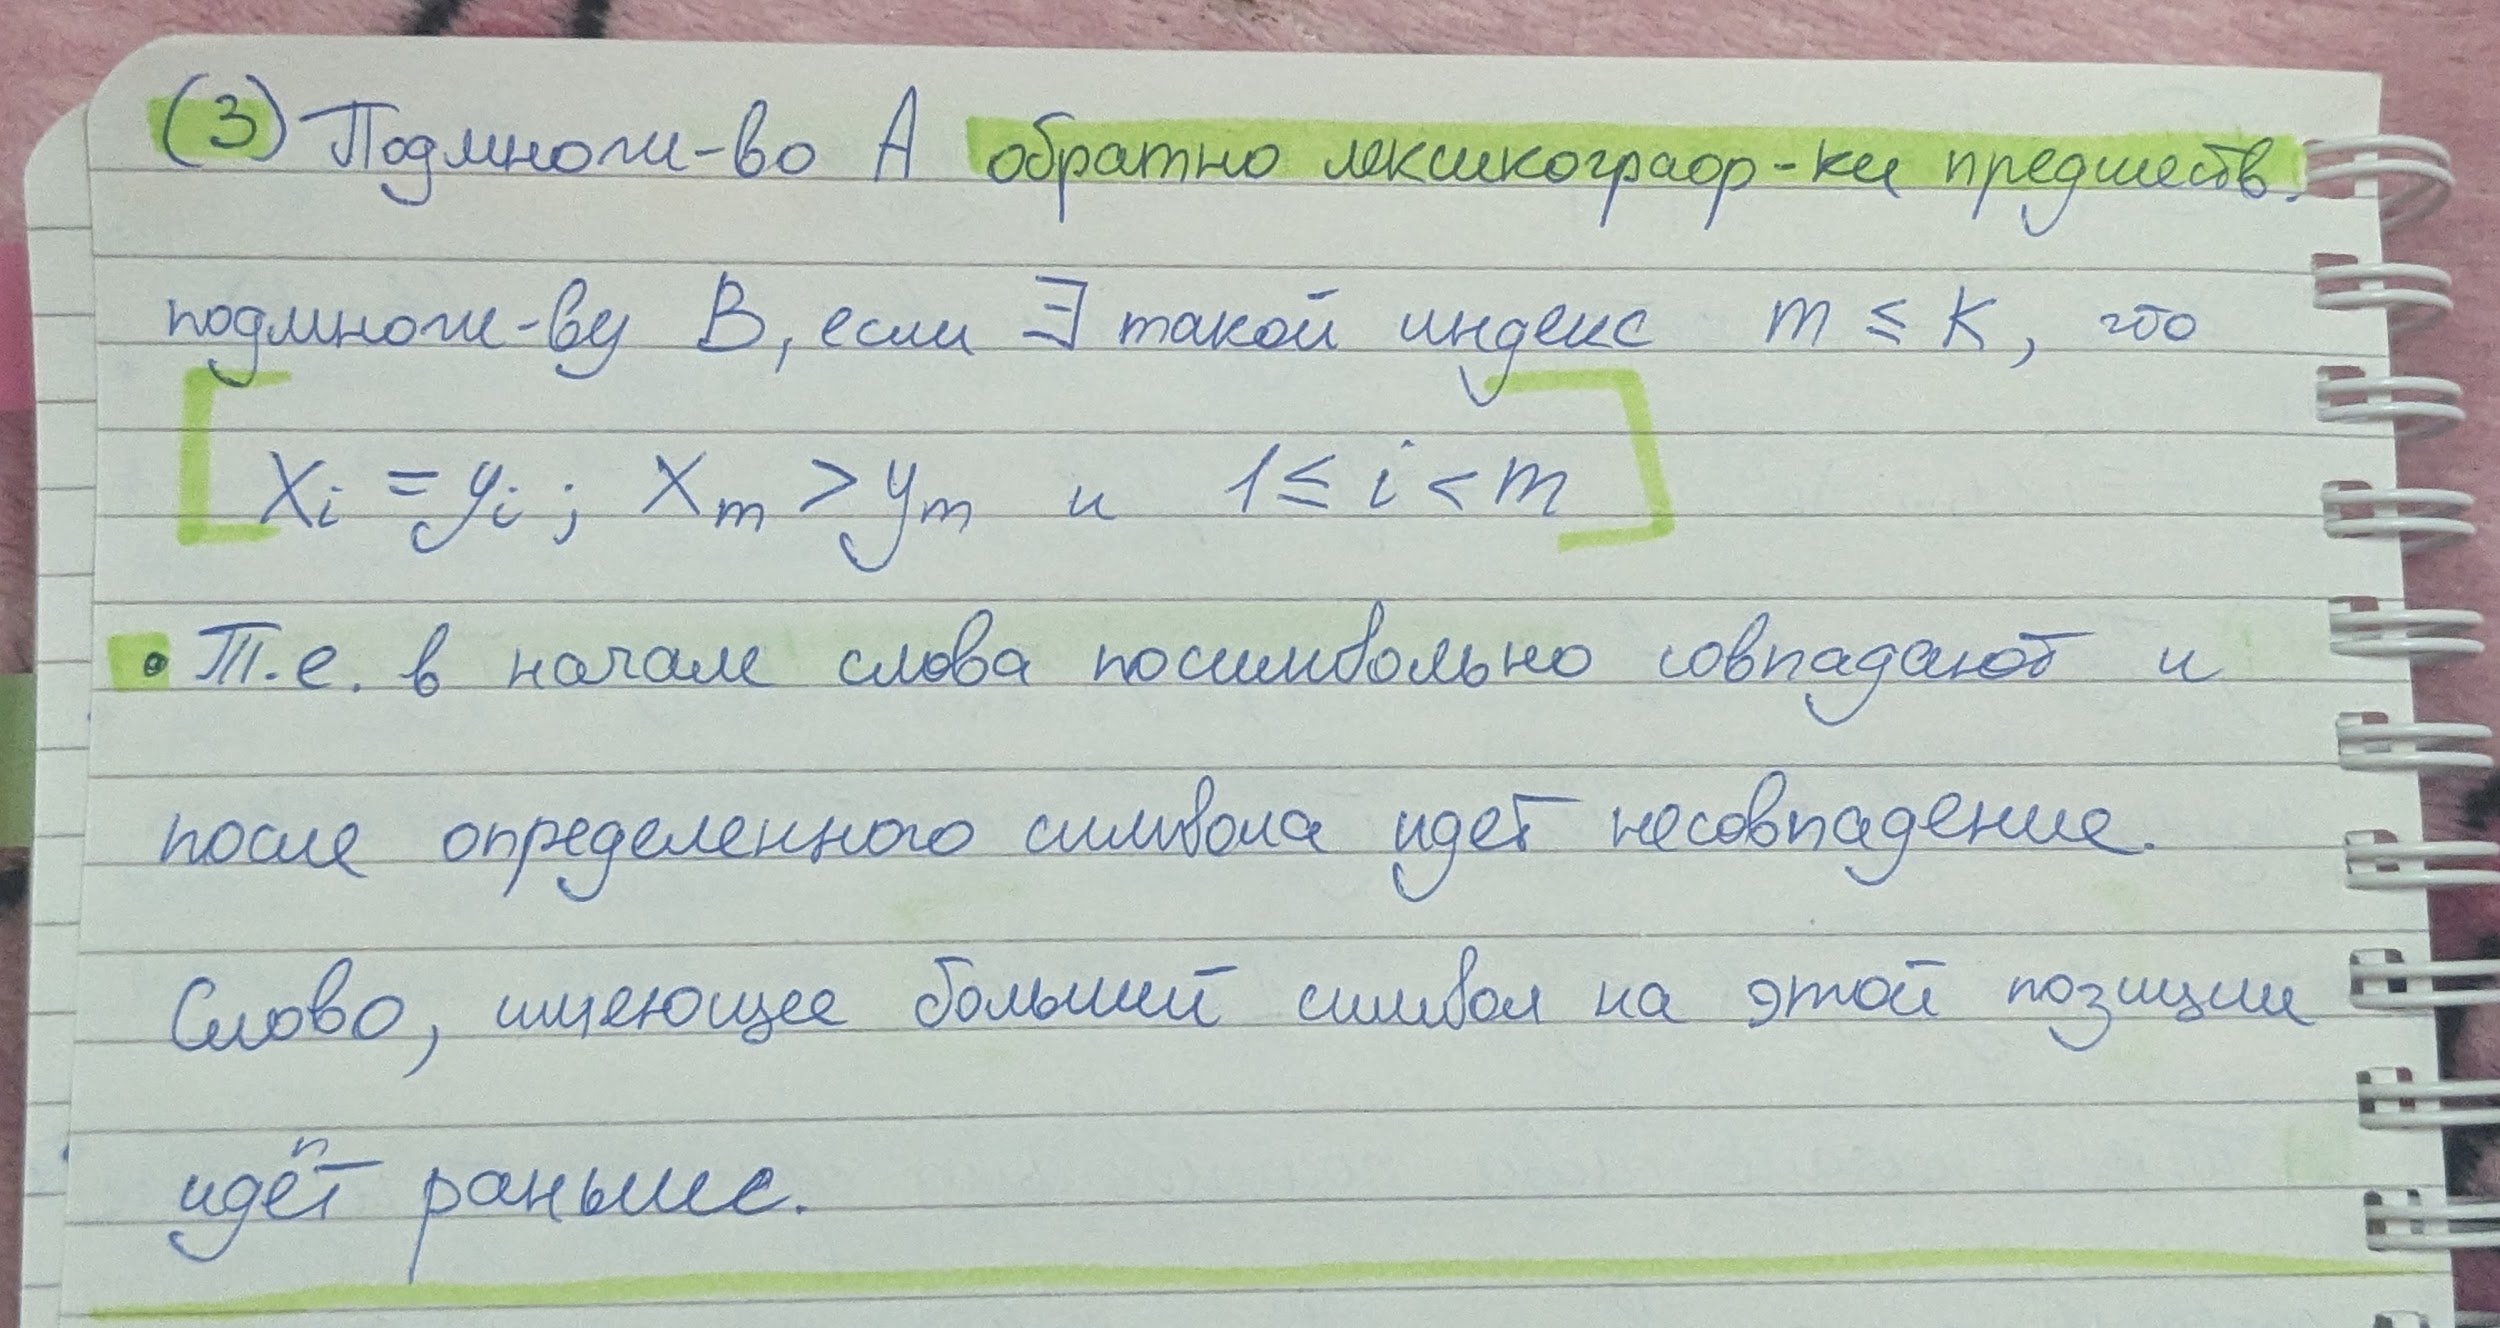 (3) Подмнож-во A обратно лексикограф-ки предшеств.
подмнож-ву B, если ∃ такой индекс m ≤ K, что
Xi = yi ; Xm > ym и 1 ≤ i < m
• Т.е. в начале слова посимвольно совпадают и
после определенного символа идет несовпадение.
Слово, имеющее больший символ на этой позиции
идёт раньше.